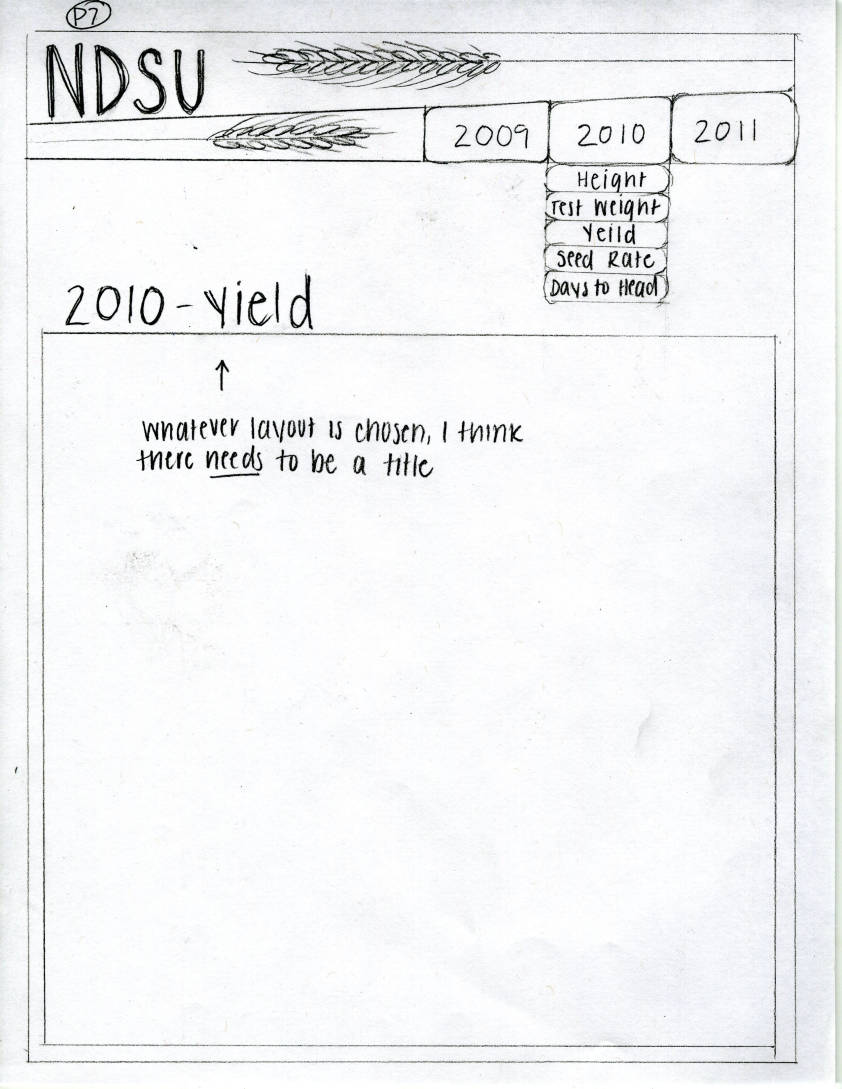 P7
NDSU
2009 2010 2011
Height
Test Weight
Yeild
Seed Rate
Days to Head
2010 - Yield
Whatever layout is chosen, I think
there needs to be a title